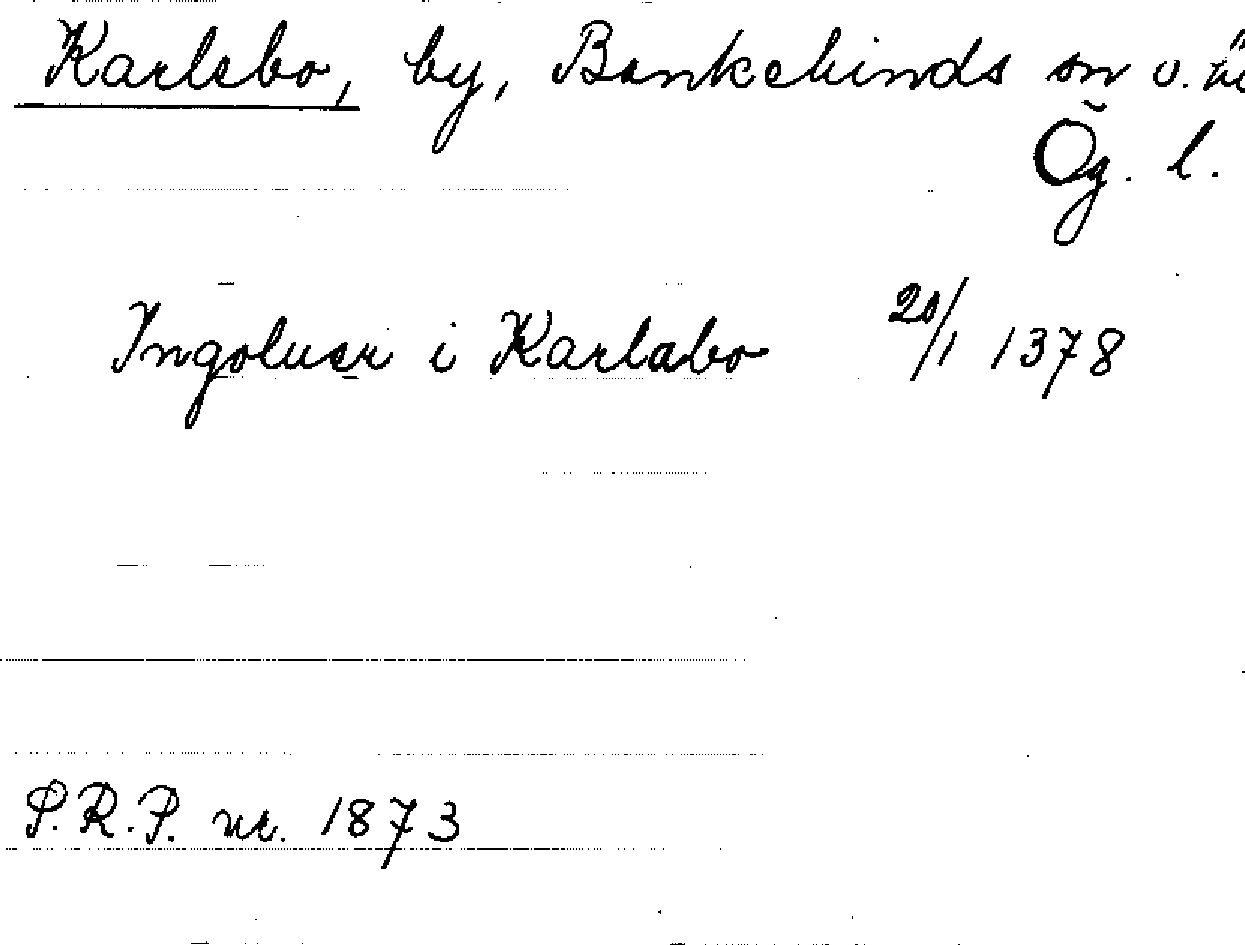 Karlsbo, by, Bankekinds sn o. hd
Ög. l.
Ingoluer i Karlabo 20/1 1378
S.R.P. nr. 1873